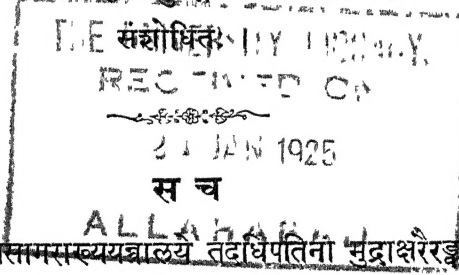 संशोधितः ।
RECEIVED ON
JAN 1925
स च
ALLAHABAD
सागराख्ययन्त्रालये तदधिपतिना मुद्राक्षरैरङ्क